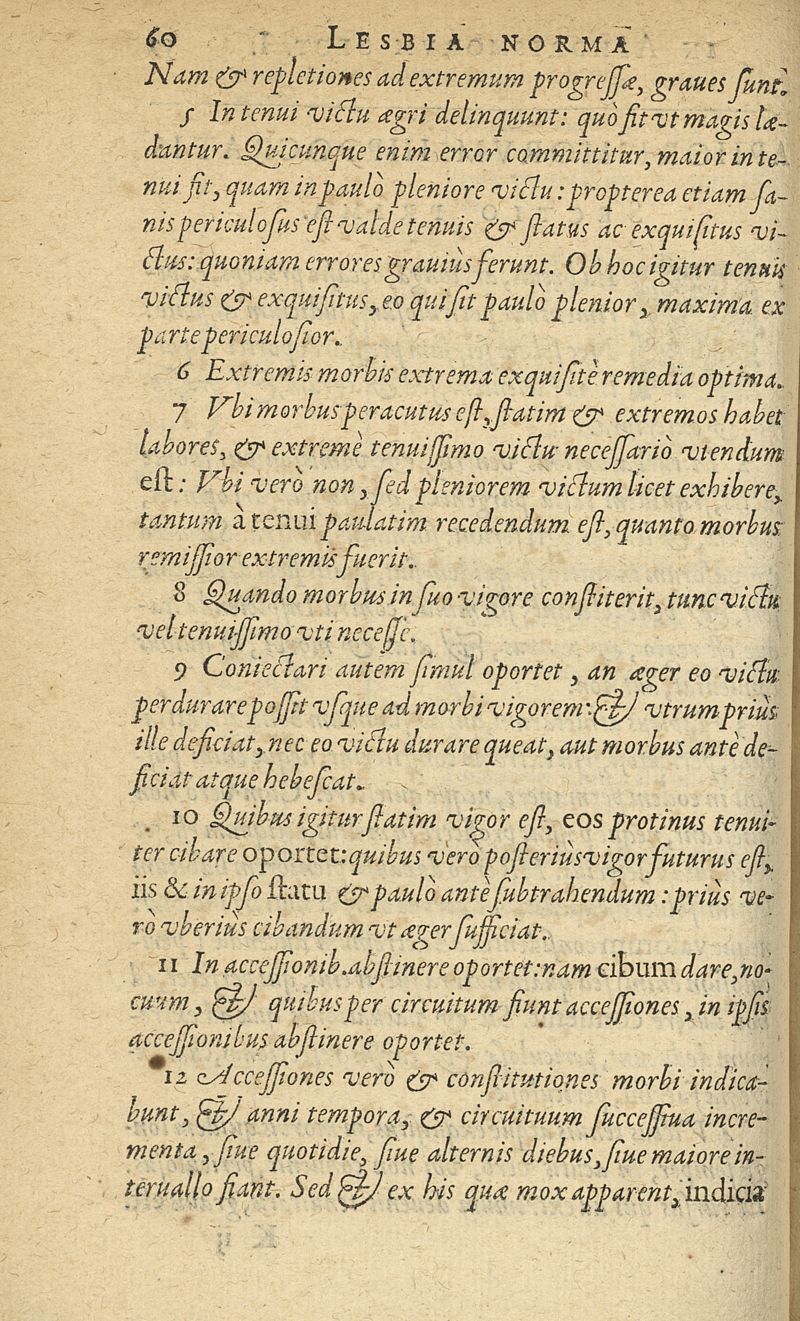 60 LESBIA NORMA
Nam & repletiones ad extremum progreſſæ, graues ſunt.
5 In tenui victu ægri delinquunt: quò fit vt magis læ-
dantur. Quicunque enim error committitur, maior in te-
nui fit, quam in paulò pleniore victu: propterea etiam ſa-
nis periculoſus eſt valde tenuis & ſtatus ac exquiſitus vi-
ctus: quoniam errores grauiùs ferunt. Ob hoc igitur tenuis
victus & exquiſitus, eo qui ſit paulò plenior, maxima ex
parte periculoſior.
6 Extremis morbis extrema exquiſitè remedia optima.
7 Vbi morbus peracutus eſt, ſtatim & extremos habet
labores, & extremè tenuiſſimo victu neceſſariò vtendum
eſt: Vbi verò non, ſed pleniorem victum licet exhibere,
tantum à tenui paulatim recedendum eſt, quanto morbus
remiſſior extremis fuerit.
8 Quando morbus in ſuo vigore conſtiterit, tunc victu
vel tenuiſſimo vti neceſſe.
9 Coniectari autem ſimul oportet, an æger eo victu
perdurare poſſit vſque ad morbi vigorem: & vtrum priùs
ille deficiat, nec eo victu durare queat, aut morbus antè de-
ficiat atque hebeſcat.
10 Quibus igitur ſtatim vigor eſt, eos protinus tenui-
ter cibare oportet: quibus verò poſteriùs vigor futurus eſt,
iis & in ipſo ſtatu & paulò antè ſubtrahendum: priùs ve-
rò vberiùs cibandum vt æger ſufficiat.
11 In acceſſionib. abſtinere oportet: nam cibum dare, no-
cuum, & quibus per circuitum fiunt acceſſiones, in ipſis
acceſſionibus abſtinere oportet.
12 Acceſſiones verò & conſtitutiones morbi indica-
bunt, & anni tempora, & circuituum ſucceſſiua incre-
menta, ſiue quotidie, ſiue alternis diebus, ſiue maiore in-
teruallo fiant. Sed & ex his quæ mox apparent, indicia